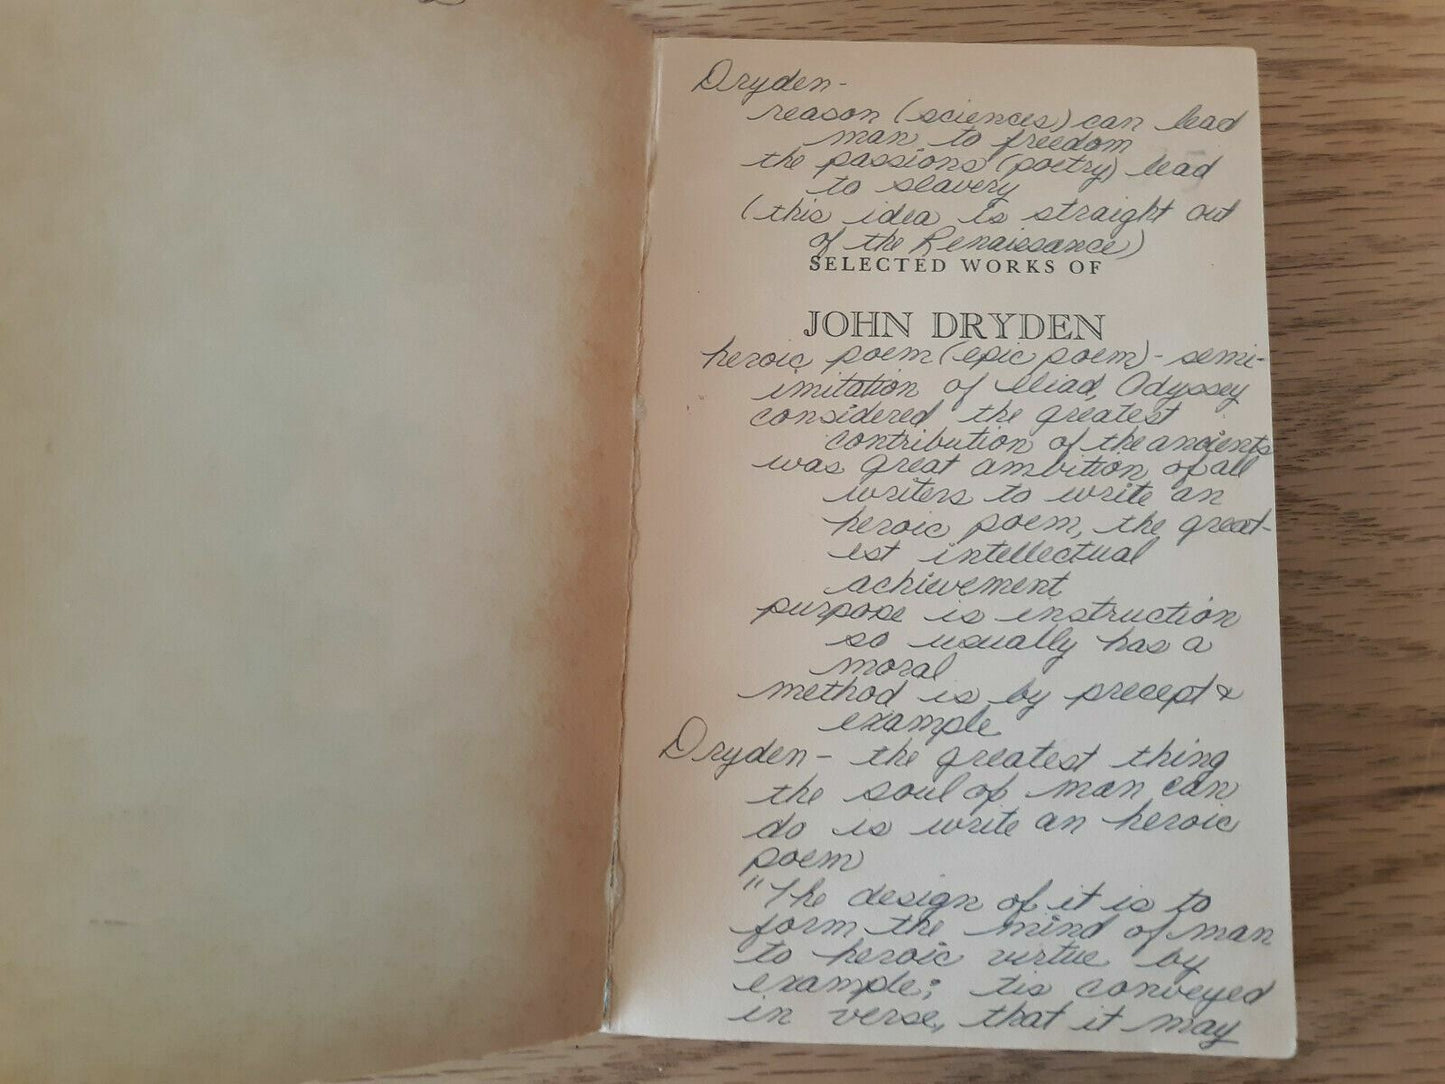 Dryden-
reason (sciences) can lead
man to freedom
the passions (poetry) lead
to slavery
(this idea is straight out
of the Renaissance)
SELECTED WORKS OF
JOHN DRYDEN
heroic poem (epic poem) - semi-
imitation of Iliad, Odyssey
considered the greatest
contribution of the ancients
was great ambition of all
writers to write an
heroic poem, the great-
est intellectual
achievement
purpose is instruction
so usually has a
moral
method is by precept &
example
Dryden - the greatest thing
the soul of man can
do is write an heroic
poem
"The design of it is to
form the mind of man
to heroic virtue by
example; tis conveyed
in verse, that it may